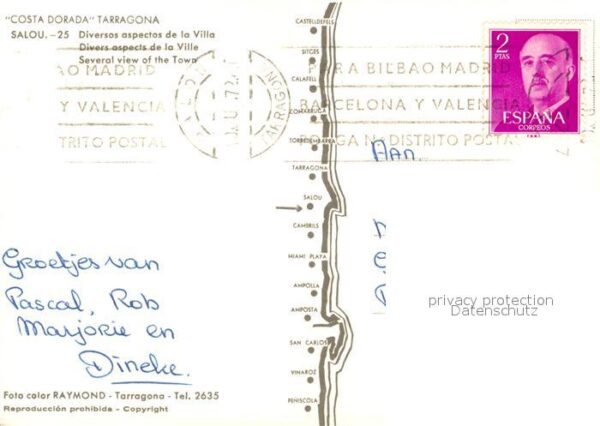 "COSTA DORADA" TARRAGONA
SALOU. - 25 Diversos aspectos de la Villa
Divers aspects de la Ville
Several view of the Town
AO MADRID
Y VALENCIA
TRITO POSTAL
SALOU
TARRAGONA
PARA BILBAO MADRID
BARCELONA Y VALENCIA
PONGA Nº DISTRITO POSTAL
2
PTAS
ESPAÑA
CORREOS
CASTELLDEFELS
SITGES
CALAFELL
COMARRUGA
TORREDEMBARRA
TARRAGONA
SALOU
CAMBRILS
MIAMI PLAYA
AMPOLLA
AMPOSTA
SAN CARLOS
VINAROZ
PEÑISCOLA
Aan.
Groetjes van
Pascal, Rob
Marjorie en
Dineke.
privacy protection
Datenschutz
Foto color RAYMOND - Tarragona - Tel. 2635
Reproducción prohibida - Copyright